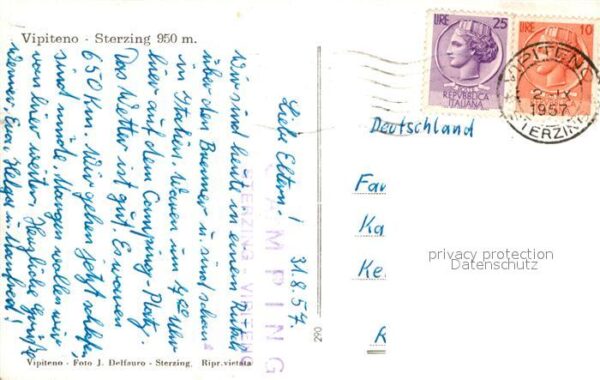 Vipiteno - Sterzing 950 m.
31.8.57
Liebe Eltern!
Wir sind heute in einem Rutsch
über den Brenner u. sind schon
in Italien. Waren um 4 00 Uhr
hier auf dem Camping-Platz.
Das Wetter ist gut. Es waren
650 km. Wir gehen jetzt schlafen,
sind müde, Morgen wollen wir
weiter. Herzliche Grüße
Helga u. Manfred!
CAMPING
STERZING - VIPITENO
Vipiteno - Foto J. Delfauro - Sterzing. Ripr. vietata
290
LIRE 25
REPUBBLICA
ITALIANA
LIRE 10
VIPITENO
1957
STERZING
Deutschland
Fa
Ka
Ke
privacy protection
Datenschutz